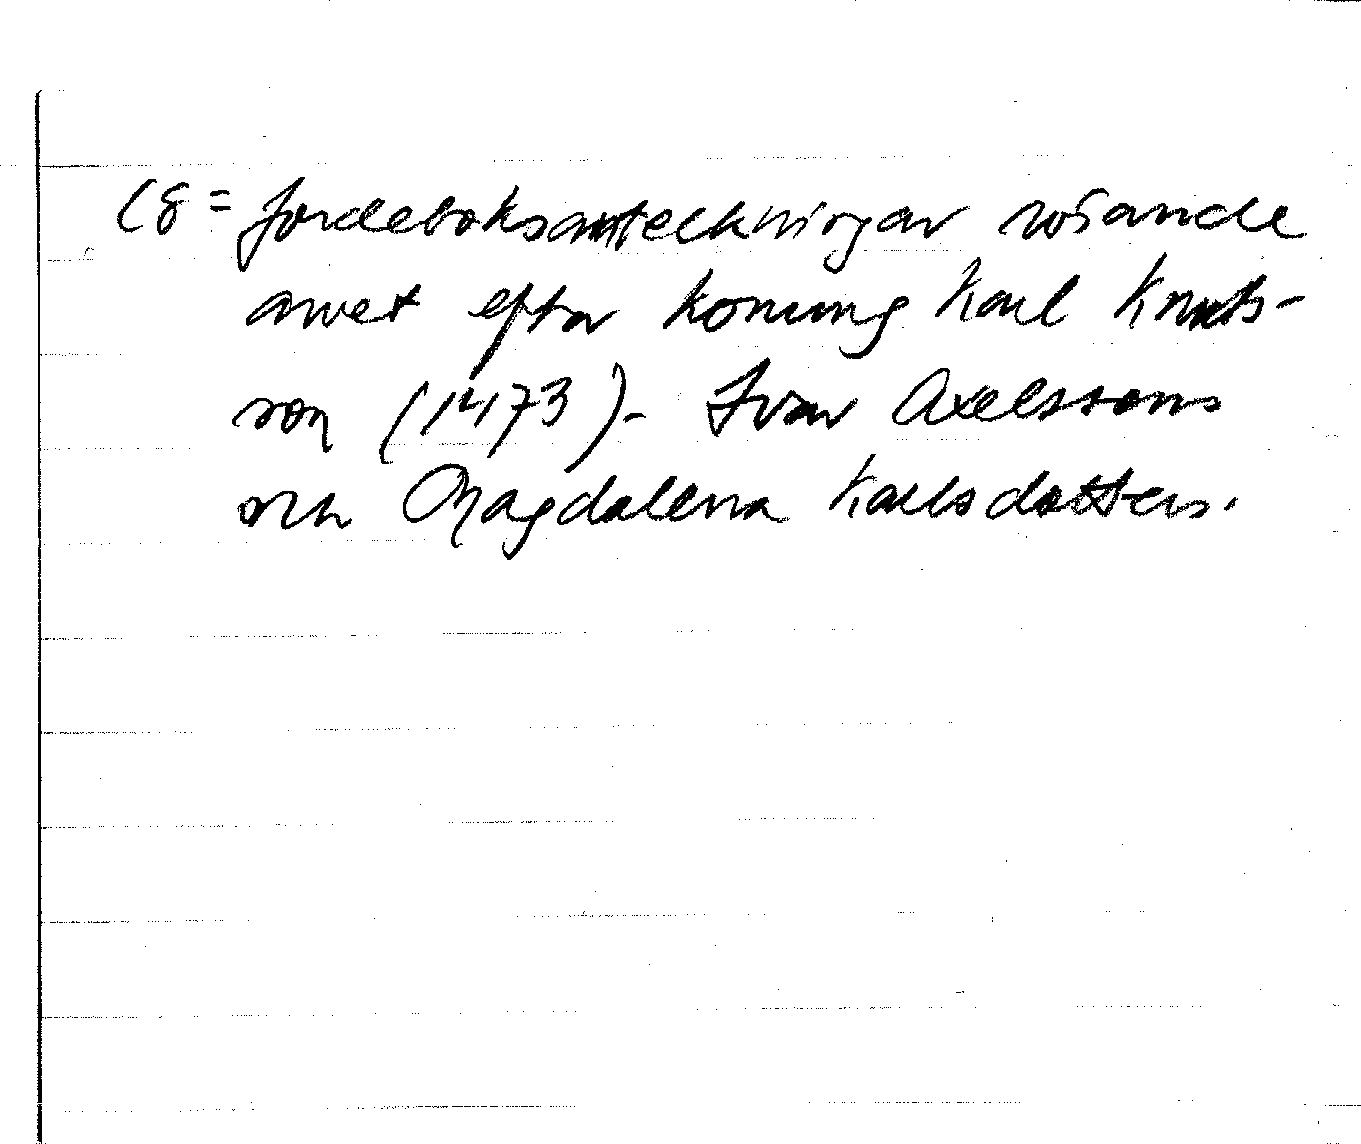 C8 = Jordeboksanteckningar rörande
arvet efter konung Karl Knuts-
son (1473). Ivar Axelssons
och Magdalena Karlsdotters.